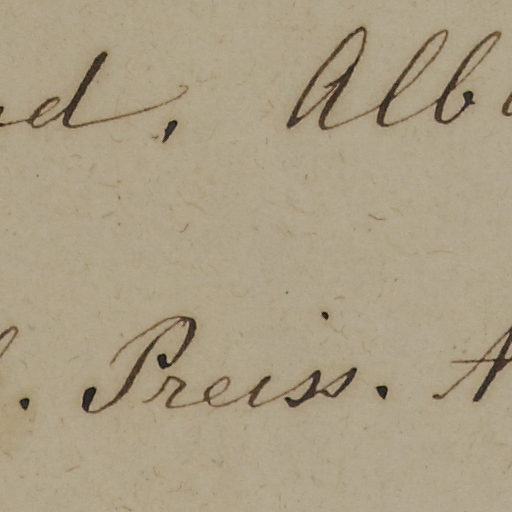 d, Alb
. Preiss. A